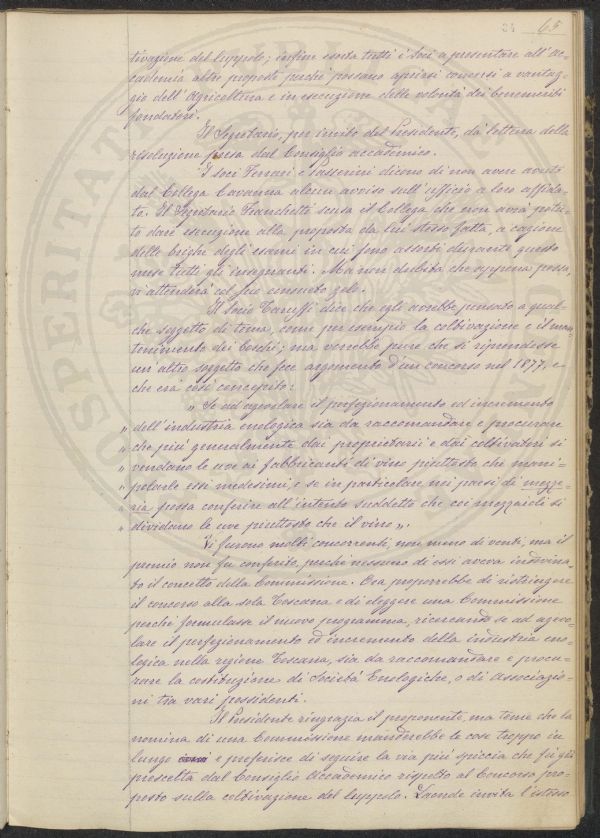 65
tivazione del luppolo; infine esorta tutti i Soci a presentare all'Ac-
cademia altre proposte perché possano aprirsi concorsi a vantag-
gio dell'Agricoltura e in esecuzione delle volontà dei benemeriti
fondatori.
Il Segretario, per invito del Presidente, dà lettura della
risoluzione presa dal Consiglio accademico.
I soci Ferrari e Passerini dicono di non avere avuto
dal Collega Cavanna alcun avviso sull'ufficio a loro affida-
to. Il Segretario Franchetti scusa il Collega che non avrà potu-
to dare esecuzione alla proposta da lui stesso fatta, a cagione
delle brighe degli esami in cui sono assorti durante questo
mese tutti gli insegnanti. Ma non dubita che appena possa,
vi attenderà col suo consueto zelo.
Il Socio Caruffi dice che egli avrebbe pensato a qual-
che soggetto di tema, come per esempio la coltivazione e il man-
tenimento dei boschi; ma vorrebbe pure che si riprendesse
un altro soggetto che fece argomento d'un concorso nel 1877, e
che era così concepito:
„ Se ad agevolare il perfezionamento ed incremento
„ dell'industria enologica sia da raccomandare e procurare
„ che più generalmente dai proprietarii e dai coltivatori si
„ vendano le uve ai fabbricanti di vino piuttosto che mani-
„ polarle essi medesimi, e se in particolare nei paesi di mezze-
„ ria possa conferire all'intento suddetto che coi mezzaioli si
„ dividano le uve piuttosto che il vino „.
Vi furono molti concorrenti, non meno di venti, ma il
premio non fu conferito, perché nessuno di essi aveva indovina-
to il concetto della Commissione. Ora proporrebbe di ristringere
il concorso alla sola Toscana e di eleggere una Commissione
perché formulasse il nuovo programma, ricercando se ad agevo-
lare il perfezionamento ed incremento della industria eno-
logica nella regione Toscana, sia da raccomandare e procu-
rare la costituzione di Società Enologiche, o di Associazio-
ni tra vari possidenti.
Il Presidente ringrazia il proponente, ma teme che la
nomina di una Commissione manderebbe le cose troppo in
lungo e preferisce di seguire la via più spiccia che fu già
prescelta dal Consiglio Accademico rispetto al Concorso pro-
posto sulla coltivazione del luppolo. Laonde invita l'istesso